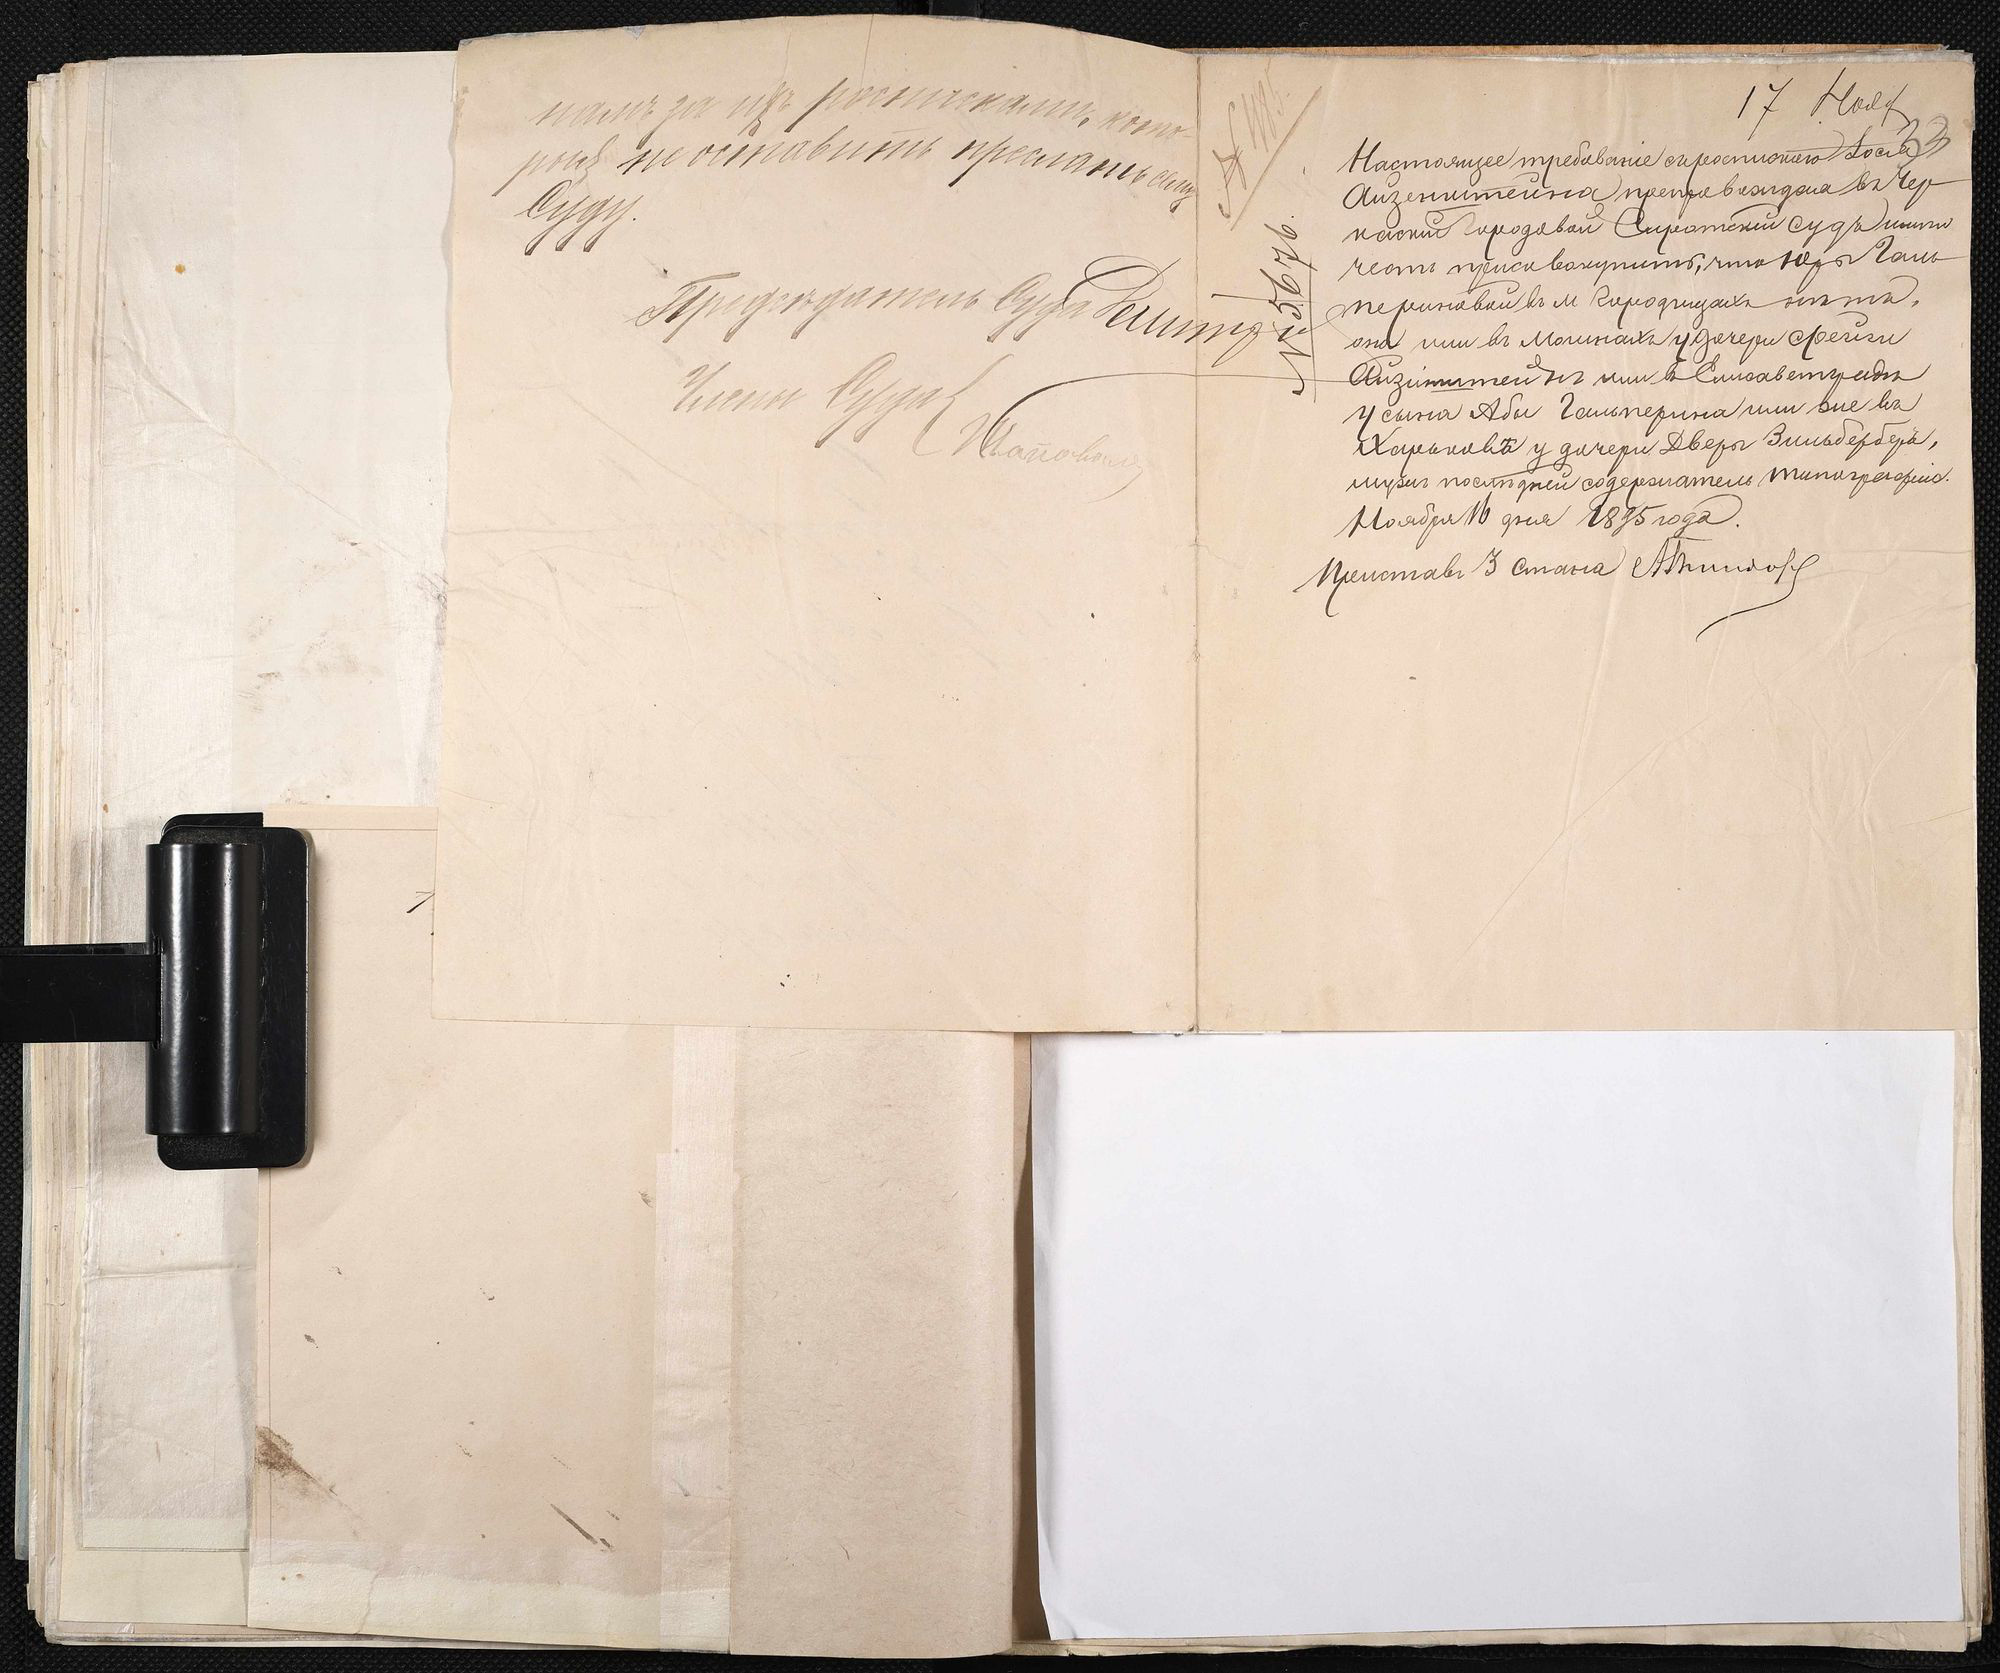 намъ за ихъ росписками, кото-
рыя неоставить прислать сему
Суду.
Председатель Суда
Члены Суда
№ 5676.
17 Нояб
33
Настоящее требованіе съ роспискою Іосія
Айзенштейна препровождая въ Чер-
каский Городовой Сиротский судъ имею
честь присовокупить, что Юры Галь-
периновой въ м Городищахъ нетъ,
она или въ Мошнахъ у дочери Фейги
Айзинштейнъ или въ Елисаветградъ
у сына Абы Гальперина или же въ
Харьковѣ у дочери Дверы Зильберберъ,
мужъ последней содержатель типографіи.
Ноября 16 дня 1895 года.
Приставъ 3 стана